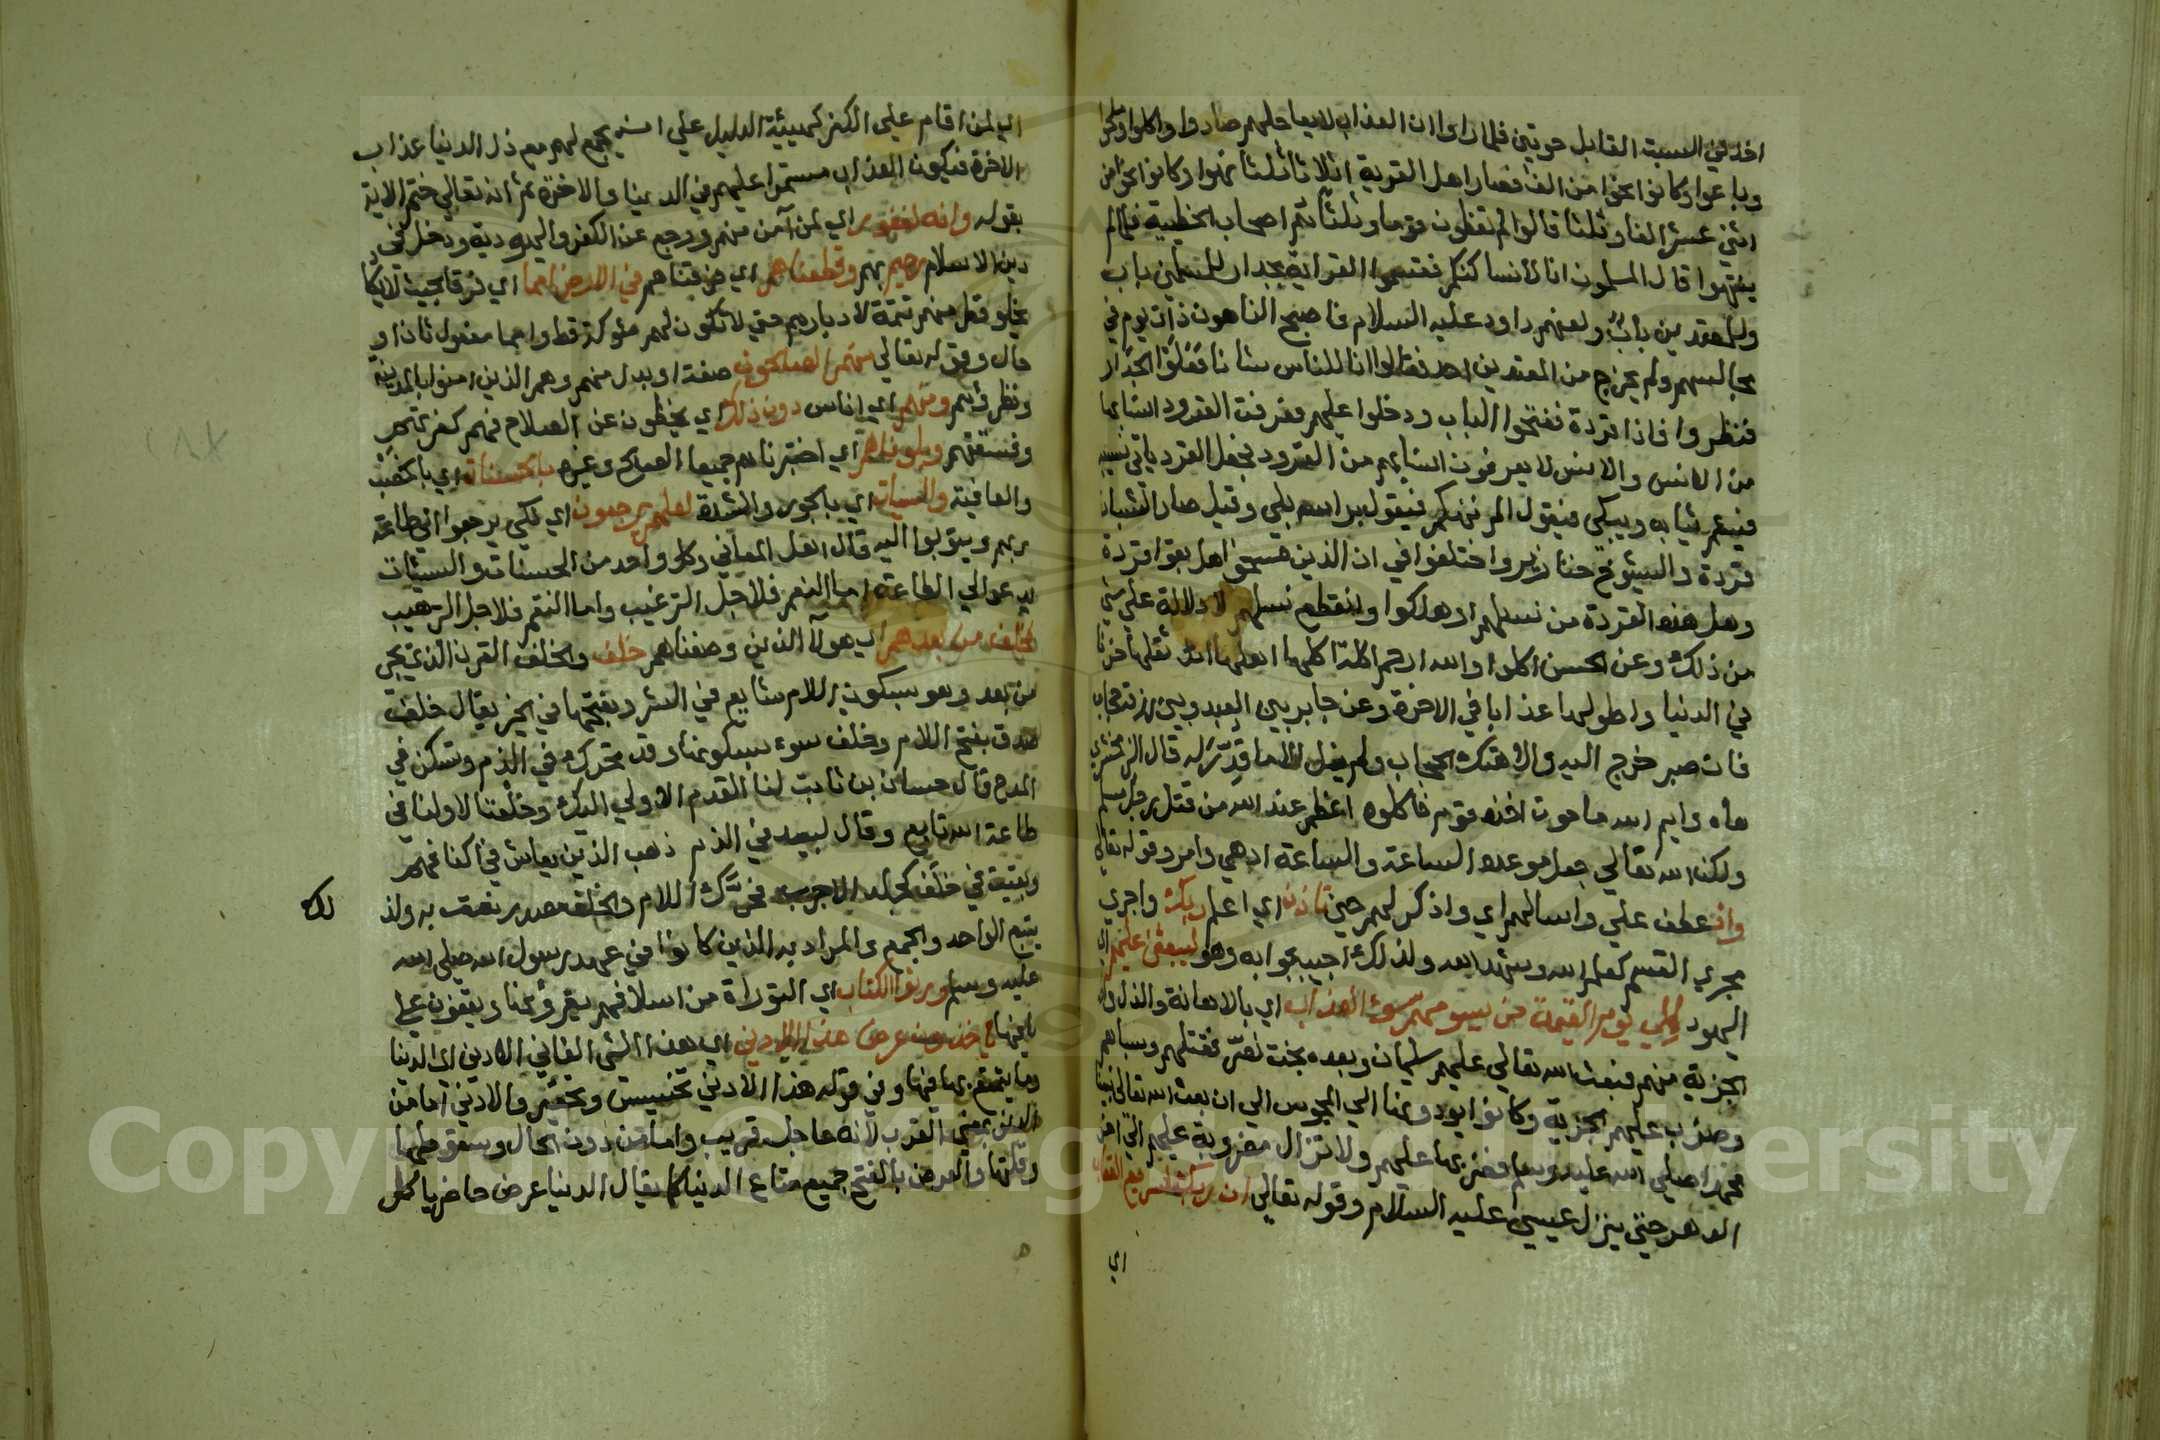 اخذ في السبت القابل حوتين فلما راى ان العذاب لا يعاجلهم صادوا واكلوا وملحوا
وباعوا وكانوا نحوا من سبعين الفا فصار اهل القرية اثلاثا ثلثا نهوا وكانوا نحوا من
اثني عشر الفا وثلثا قالوا لم تعظون قوما وثلثا هم اصحاب الخطيئة فلما لم
ينتهوا قال المسلمون انا لا نساكنكم فقسموا القرية بجدار للمسلمين باب
وللمعتدين باب ولعنهم داود عليه السلام فاصبح الناهون ذات يوم في
مجالسهم ولم يخرج من المعتدين احد فقالوا ان للناس شانا فعلوا الجدار
فنظروا فاذا قردة ففتحوا الباب ودخلوا عليهم فعرفت القرود انسابها
من الانس والانس لا يعرفون انسابهم من القرود فجعل القرد ياتي نسيبه
فيشم ثيابه ويبكي فيقول الم ننهكم فيقول براسه بلى وقيل صار الشبان
قردة والشيوخ خنازير واختلفوا في ان الذين مسخوا هل بقوا قردة
وهل هذه القردة من نسلهم او هلكوا وانقطع نسلهم لا دلالة على شي
من ذلك وعن الحسن اكلوا والله اوخم اكلة اكلها اهلها اثقلها خزيا
في الدنيا واطولها عذابا في الاخرة وعن جابر بين العبد وبين رزقه حجاب
فان صبر خرج اليه والا هتك الحجاب ولم ينل الا ما قدر له قال الزمخشري
هاه وايم الله ما حوت اخذه قوم فاكلوه اعظم عند الله من قتل رجل مسلم
ولكن الله تعالى جعل موعدا الساعة والساعة ادهى وامر وقوله تعالى
واذ عطف على واسالهم اي واذكر لهم حين تاذن اي اعلم ربك واجري
مجرى القسم كعلم الله وشهد الله ولذلك اجيب بجوابه وهو ليبعثن عليهم اي
اليهود الى يوم القيمة من يسومهم سوء العذاب اي بالاهانة والذل واخذ
الجزية منهم فبعث الله تعالى عليهم سليمان وبعده بخت نصر فقتلهم وسباهم
وضرب عليهم الجزية وكانوا يودونها الى المجوس الى ان بعث الله تعالى نبينا
محمدا صلى الله عليه وسلم فضربها عليهم ولا تزال مضروبة عليهم الى اخر
الدهر حتى ينزل عيسى عليه السلام وقوله تعالى ان ربك لسريع العقاب
اي
اي لمن اقام على الكفر كهيئة الدليل على انه يجمع لهم مع ذل الدنيا عذاب
الاخرة فيكون العذاب مستمرا عليهم في الدنيا والاخرة ثم انه تعالى ختم الاية
بقوله وانه لغفور اي لمن آمن منهم ورجع عن الكفر واليهودية ودخل في
دين الاسلام رحيم بهم وقطعناهم اي فرقناهم في الارض امما اي فرقا بحيث لا يكاد
يخلو قطر منهم تتمة لادبارهم حتى لا تكون لهم شوكة قط وامما مفعول ثان او
حال وقوله تعالى منهم الصالحون صفة او بدل منهم وهم الذين امنوا بالمدينة
ونظرائهم ومنهم اي اناس دون ذلك اي منحطون عن الصلاح فهم كفرتهم
وفسقتهم وبلوناهم اي اختبرناهم جميعا الصالح وغيره بالحسنات اي بالخصب
والعافية والسيات اي بالجدب والشدة لعلهم يرجعون اي لكي يرجعوا الى طاعة
ربهم ويتوبوا اليه قال اهل المعاني وكل واحد من الحسنات والسيئات
يدعوا الى الطاعة اما النعم فلاجل الترغيب واما النقم فلاجل الترهيب
فخلف من بعدهم اي هولاء الذين وصفناهم خلف والخلف القرن الذي يجي
من بعد وهو بسكون اللام شايع في الشر وبفتحها في الخير يقال خلف
صدق بفتح اللام وخلف سوء بسكونها وقد تحرك في الذم وتسكن في
المدح قال حسان بن ثابت لنا القدم الاولى اليك وخلفنا لاولنا في
طاعة الله تابع وقال لبيد في الذم ذهب الذين يعاش في اكنافهم
وبقيت في خلف كجلد الاجرب فحرك اللام والخلف مصدر نعت به ولذلك
يتبع الواحد والجمع والمراد به الذين كانوا في عهد رسول الله صلى الله
عليه وسلم ورثوا الكتاب اي التوراة من اسلافهم يقرؤنها ويقفون على
ما فيها ياخذون عرض هذا الادنى اي هذا الشي الفاني الادنى اي الدنيا
وما يتمتع به فيها وفي قوله هذا الادنى تخسيس وتحقير والادنى اما من
الدنو بمعنى القرب لانه عاجل قريب واما من دون الحال وسقوطها
وقلتها والعرض بالفتح جميع متاع الدنيا كما يقال الدنيا عرض حاضر ياكل